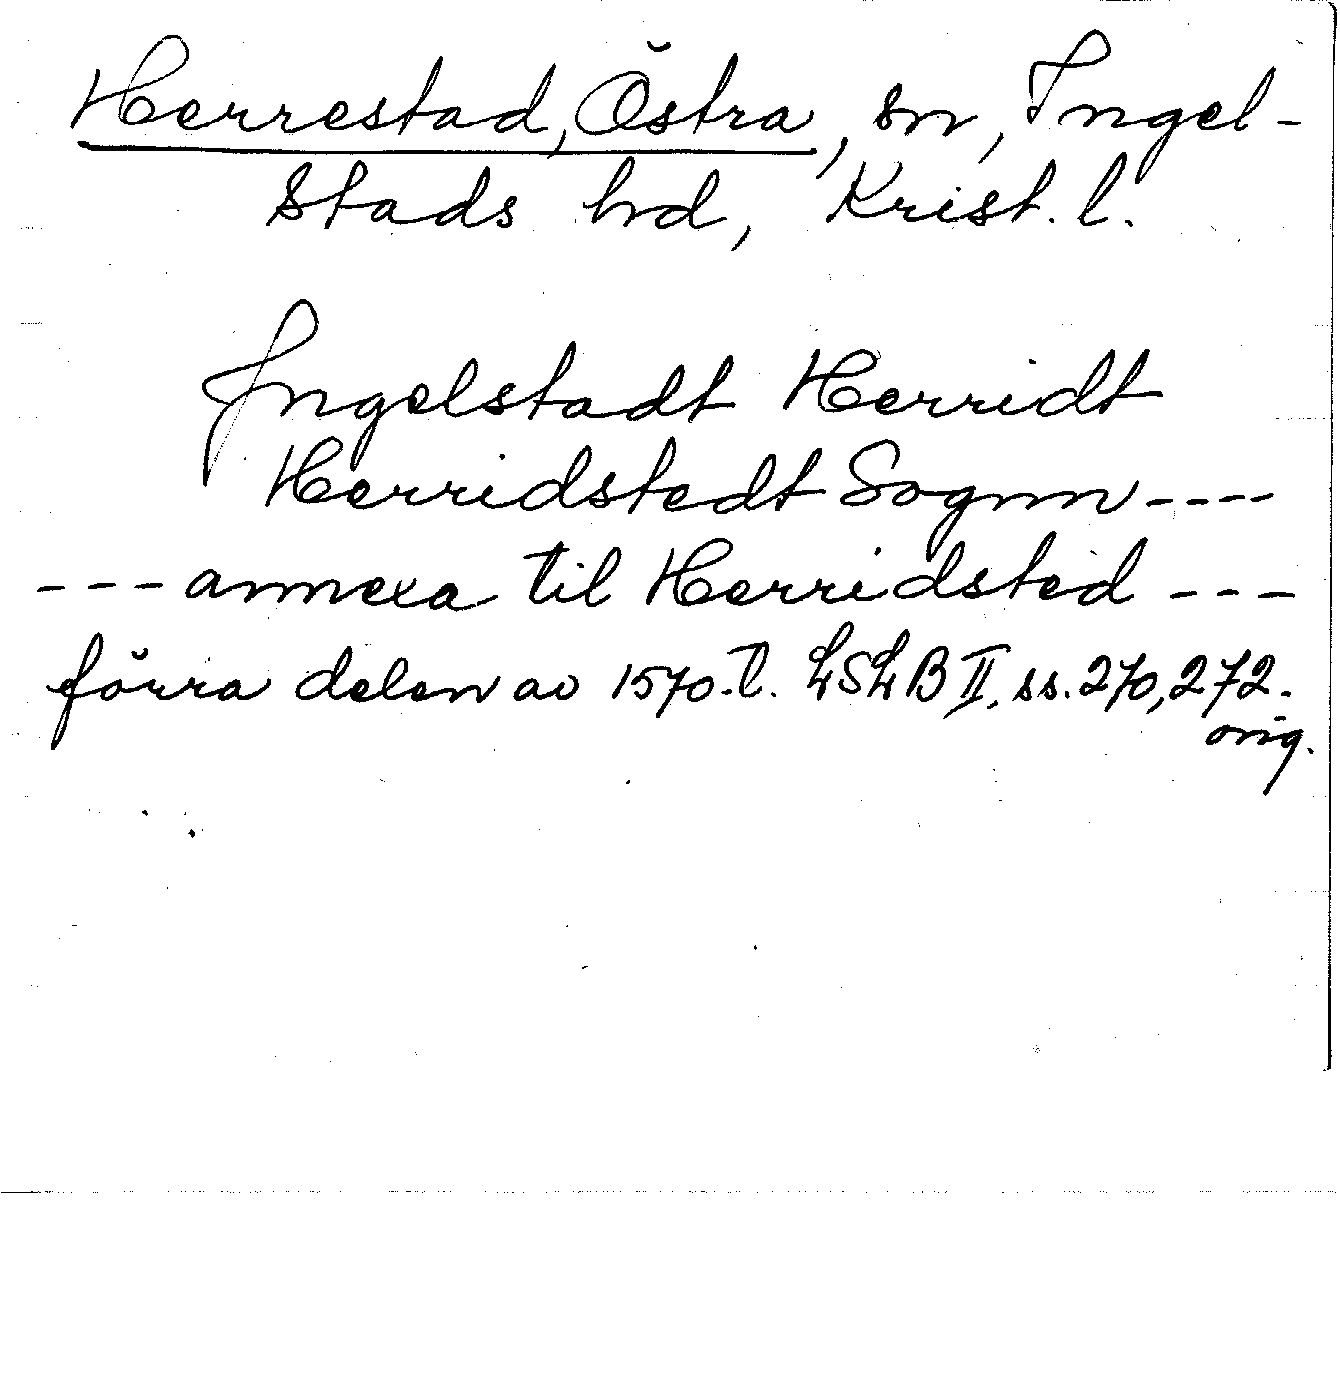 Herrestad, Östra, sn, Ingel-
stads hd, Krist. l.
Ingelstadt Herridt
Herridstedt Sognn ----
--- annexa til Herridsted ---
förra delen av 1570-t. LSLB II, ss. 270, 272.
orig.